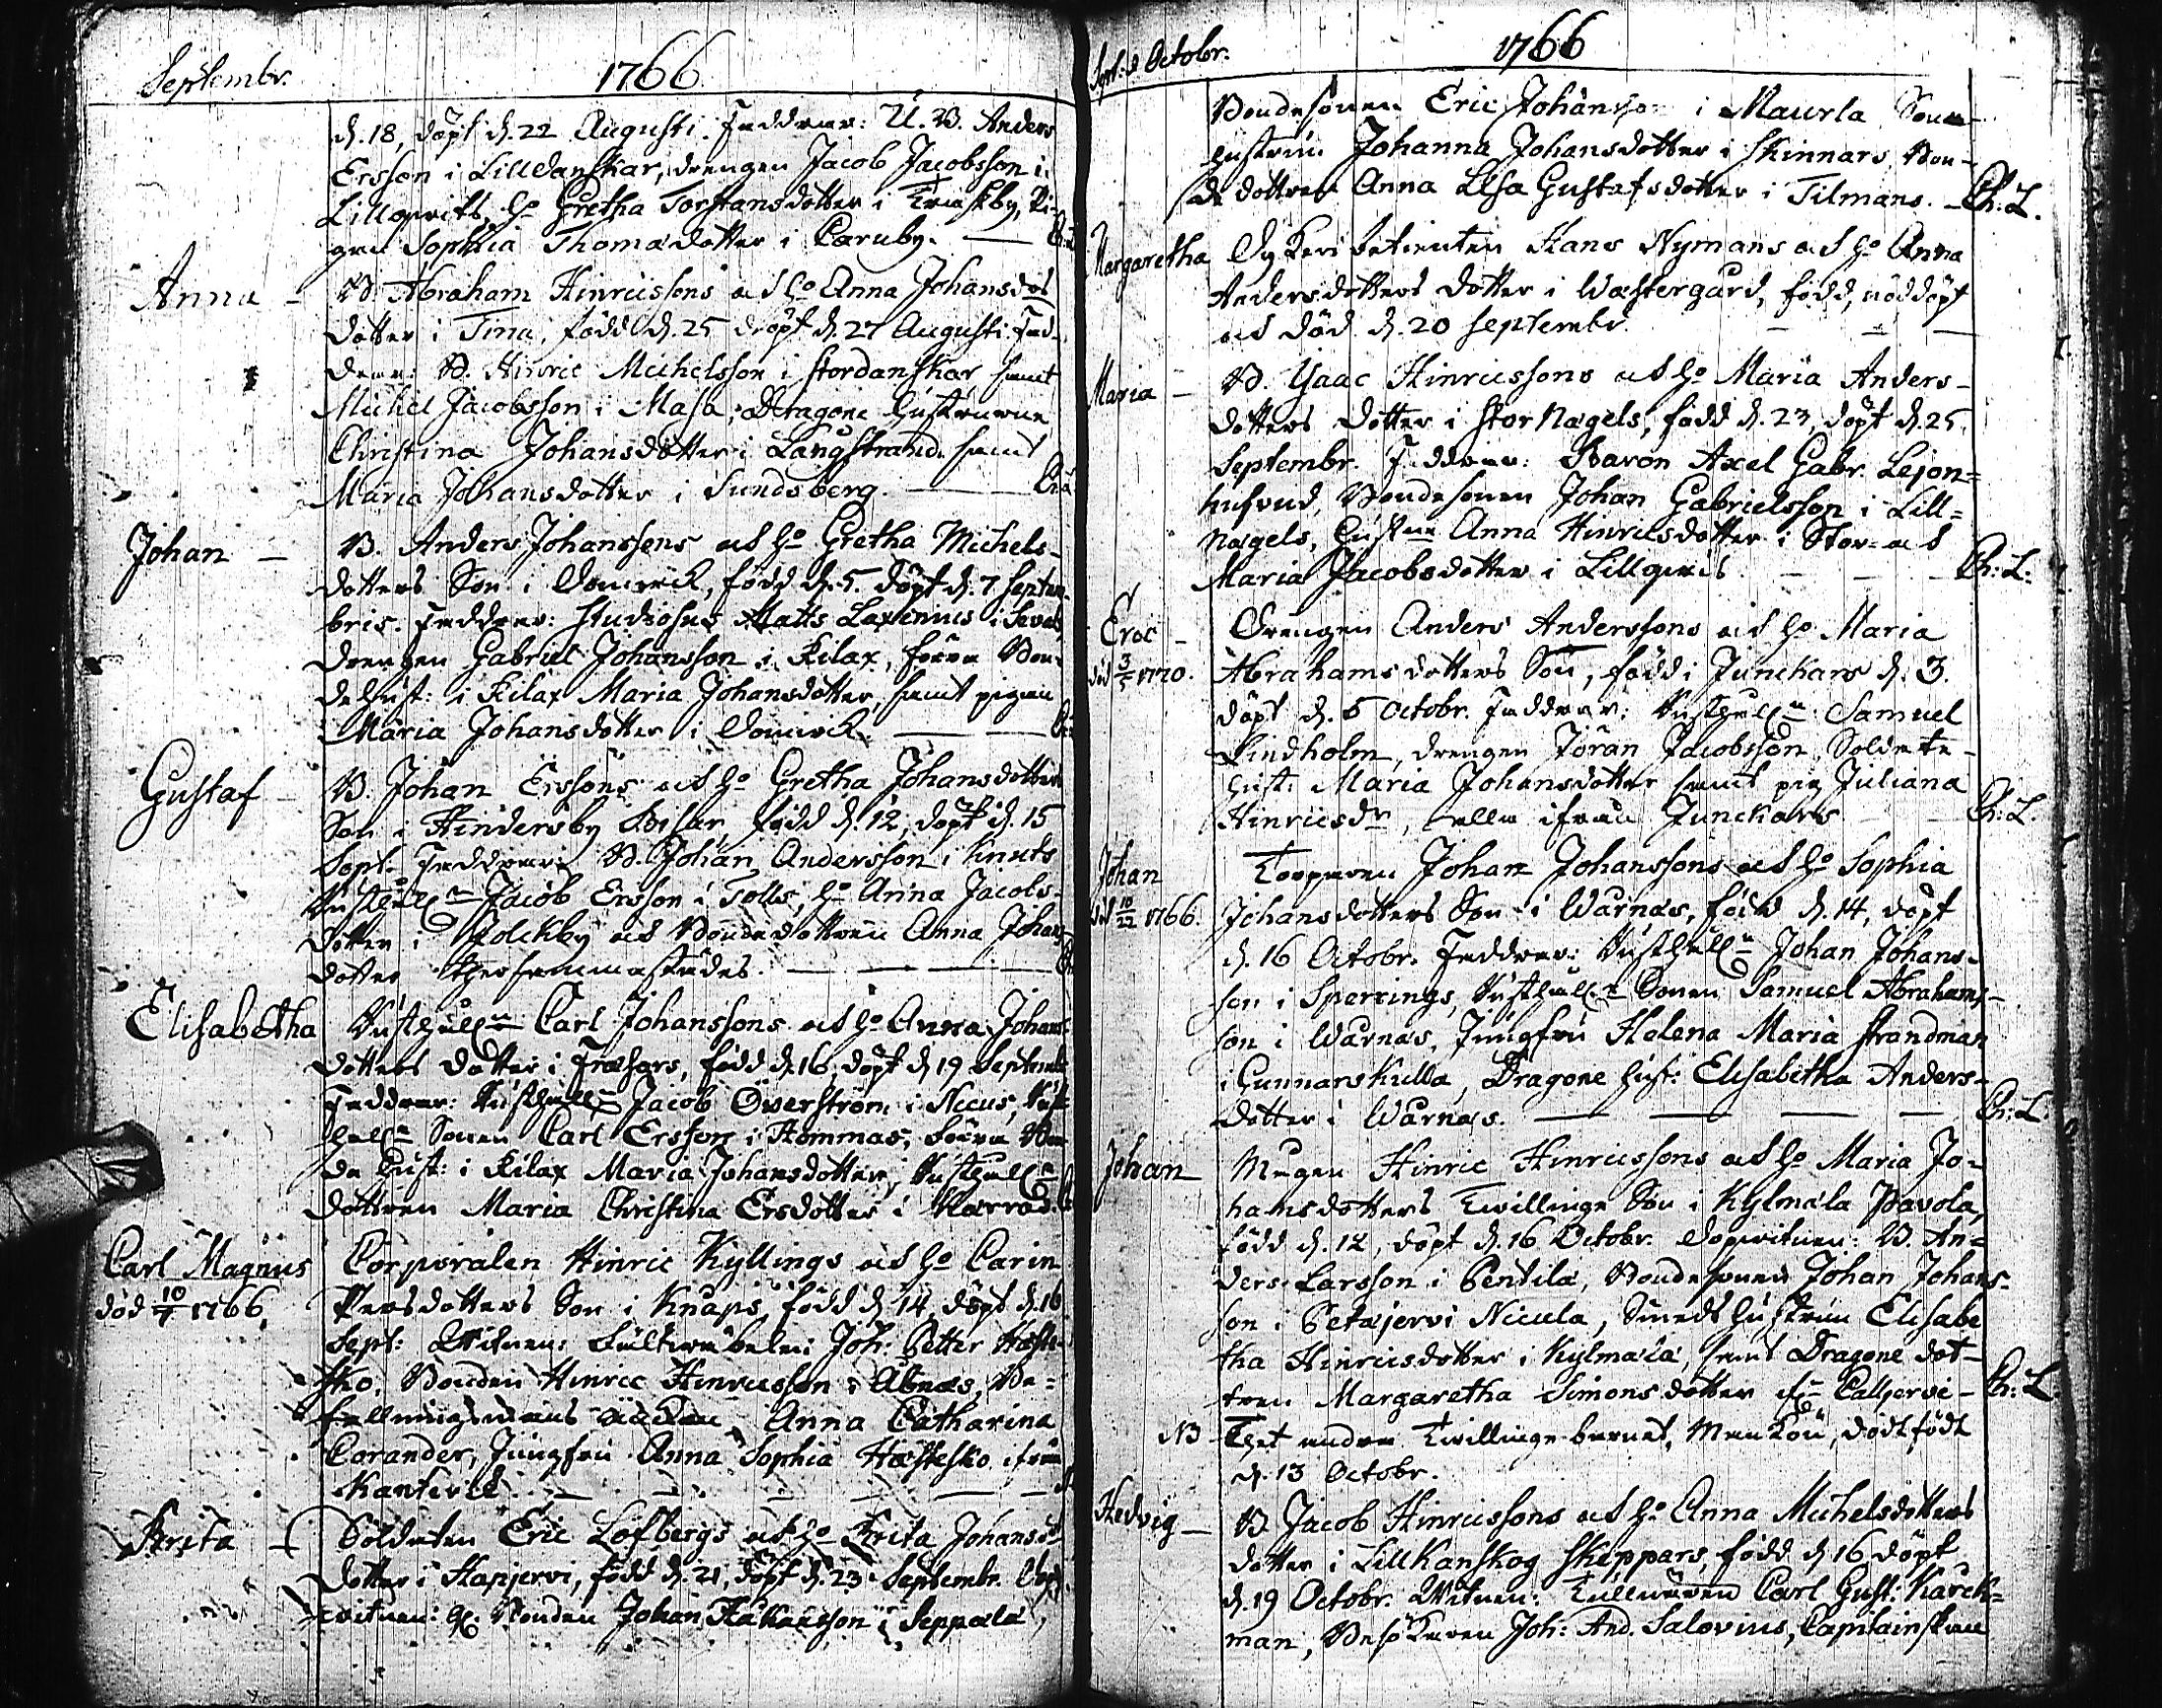 Septembr. 1766
d. 18, döpt d. 22 Augusti. Faddrar: U. B. Anders
Ersson i Lilldanskar, drengen Jacob Jacobsson i
Lillgrells, Ho Gretha Torstansdotter i Träskby, Pi-
gan Sophia Thomædotter i Caruby.
Anna - B. Abraham Hinricssons ach Ho Anna Johansdrs
dotter i Tina, född d. 25 döpt d. 27 Augusti. Fad-
drar: B. Hinric Michelsson i Stordanskar samt
Michel Jacobsson i Masa, Dragone Hustruerne
Christina Johansdotter i Långstrand samt
Maria Johansdotter i Sundsberg.
Johan - B. Anders Johanssons ach Ho Gretha Michels-
dotters Son i Domvick, född d. 5. döpt d. 7 Septem-
bris. Faddrar: Studiosus Matts Laxenius i
drengen Gabriel Johansson i Kilax, förra Bon-
de Hust: i Kilax Maria Johansdotter, samt pigan
Maria Johansdotter i Domvick.
Gustaf - B. Johan Erssons ach Ho Gretha Johansdotters
Son i Hindersby Bisar, född d. 12, döpt d. 15
Sept. Faddrar: B. Johan Andersson i Knuts
Rusthålln Jacob Ersson i Tolls, Ho Anna Jacobs-
dotter i Jolckby ach Bondedottren Anna Johans-
dotter thersammastädes.
Elisabetha Rusthålln Carl Johanssons ach Ho Anna Johans-
dotters dotter i Fräsars, född d. 16, döpt d 19 Septembr
Faddrar: Rusthålln Jacob Öwerström i Nicus, Rust-
hålln Sonen Carl Ersson i Hommas, förra Bon-
de Hust: i Kilax Maria Johansdotter, Rusthålln
dottren Maria Christina Ersdotter i Kärra.
Carl Magnus Corporalen Hinric Kyllings ach Ho Carin
död 10/7 1766. Persdotters Son i Knaps, född d 14, döpt d. 16
Sept: Witnen: Joh: Petter Hæste-
sko, Bonden Hinric Hinricsson i Åbnäs, Be-
fallningsmans Anna Catharina
Corander, Jungfru Anna Sophia Hæstesko ifrån
Kantvick.
Brita - Soldaten Eric Löfbergs ach Ho Brita Johans-
dotter i Hapjervi, född d. 21, döpt d. 23 Septembr. Dop-
witnen: Bonden Johan Håkansson i Seppälä,
Sept: & Octobr. 1766
Bondesonen Eric Johansson i Maurla, Sone-
hustrun Johanna Johansdotter i Skinnars, Bon-
de dottren Anna Lisa Gustafsdotter i Tilmans. - Ch: L.
Margaretha Hans Nymans ach Ho Anna
Andersdotters dotter i Wästergård, född, nöddöpt
ach död d. 20 Septembr.
Maria - B. Ysaac Hinricssons ach Ho Maria Anders-
dotters dotter i Stor Nagels, född d. 23, döpt d. 25
Septembr. Faddrar: Baron Axel Gabr. Lejon-
hufvud, Bondesonen Johan Gabrielsson i Lill-
nagels, Hustrn Anna Hinricsdotter i Stor- ach
Maria Jacobsdotter i Lillgrels. Ch: L.
Eric - Drengen Anders Anderssons ach Ho Maria
död 3/5 1770. Abrahamsdotters Son, född i Junckars d. 3.
döpt d. 5 Octobr. Faddrar: Rusthålln Samuel
Lindholm, drengen Jöran Jacobsson, Soldate-
hust: Maria Johansdotter samt pig: Juliana
Hinricsdr, alla ifrån Junckars Ch: L.
Johan Torparen Johan Johanssons ach Ho Sophia
död 10/22 1766. Johansdotters Son i Warnäs, född d. 14, döpt
d. 16 Octobr. Faddrar: Rusthålln Johan Johans-
son i Sperrings, Rusthålln Sonen Samuel Abrahams-
son i Warnäs, Jungfru Helena Maria Strandman
i Gunnarskulla, Dragone Hust: Elisabetha Anders-
dotter i Warnäs. Ch: L.
Johan Mågen Hinric Hinricssons ach Ho Maria Jo-
hansdotters Twillinge Son i Kylmäla Pavola,
född d. 12, döpt d. 16 Octobr. Dopwitnen: B. An-
ders Larsson i Pentilä, Bondesonen Johan Johans-
son i Petäjervi Nicula, Smeds Hustrun Elisabe
tha Hinricsdotter i Kylmälä, samt Dragone dot-
tren Margaretha Simonsdotter ifr. Calljervi - Ch: L.
NB Thet andra Twillinge barnet, Mankön, dödfödt
d. 13 Octobr.
Hedvig - B. Jacob Hinricssons ach Ho Anna Michelsdotters
dotter i Lill Kanskog Skeppars, född d 16 döpt
d. 19 Octobr. Witnen: Tullnären Carl Gust: Karck-
man, Besökaren Joh: And. Salovius, Capitainskan